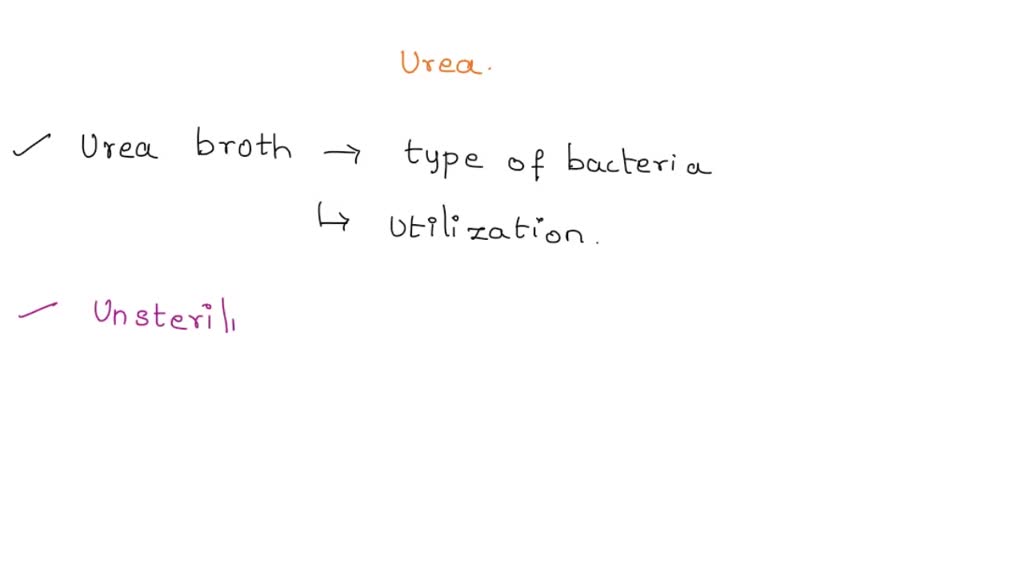 Urea.
Urea broth → type of bacteria
↳ utilization.
Unsteril